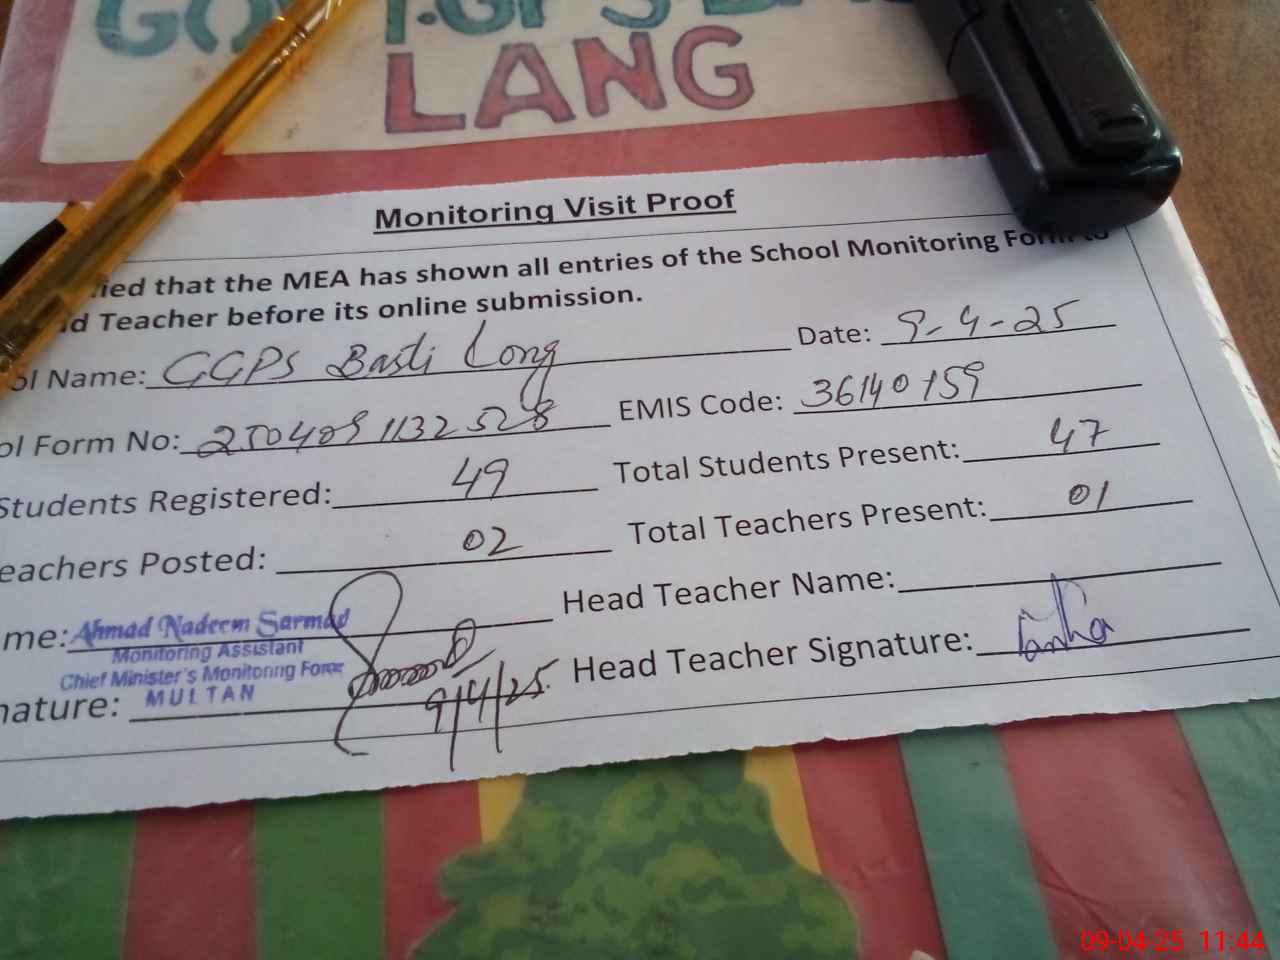 LANG
Monitoring Visit Proof
that the MEA has shown all entries of the School Monitoring Form to
Teacher before its online submission.
Name: GGPS Basti Long Date: 9-4-25
Form No: 2504091132528 EMIS Code: 36140159
Students Registered: 49 Total Students Present: 47
Teachers Posted: 02 Total Teachers Present: 01
Ahmad Nadeem Sarmad Head Teacher Name:
Monitoring Assistant
Chief Minister's Monitoring Force
MULTAN
9/4/25 Head Teacher Signature:
09-04-25 11:44